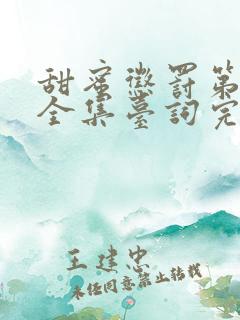 甜蜜懲罰第
全集臺詞完
王建忠
未经同意禁止转载